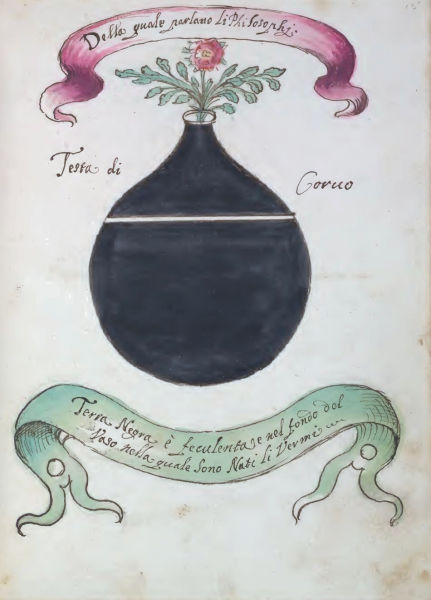 Della quale parlano li Philosophi
Testa di
Coruo
Terra Negra è feculenta e nel fondo del
Vaso nella quale sono Nati li Vermi